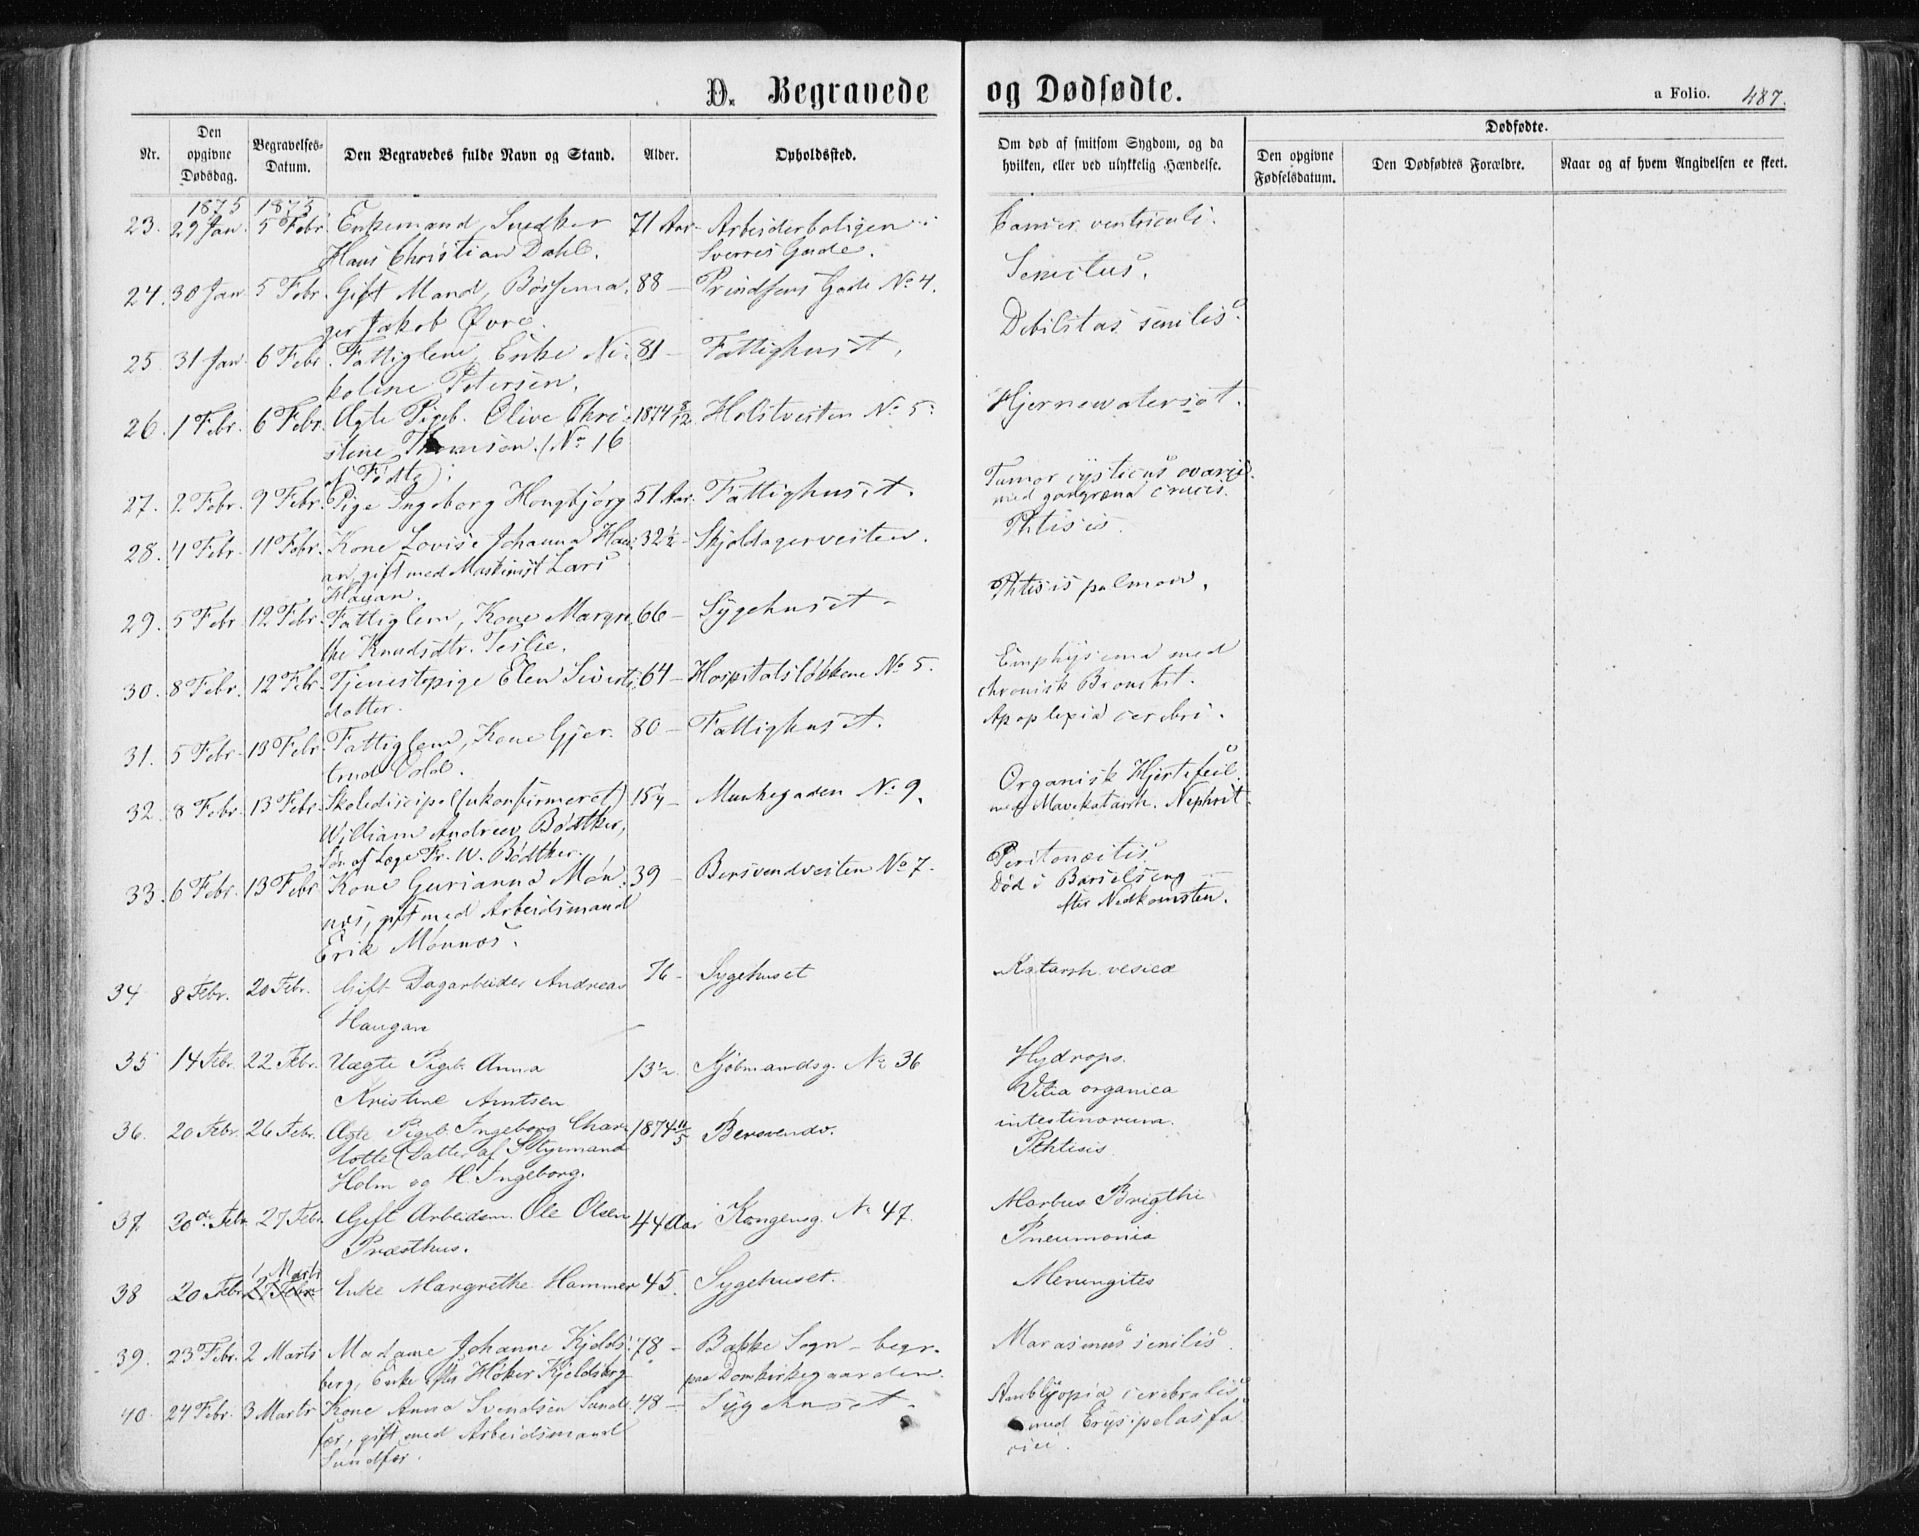 D. Begravede og Dødfødte.
a Folio. 487.
Nr. Den opgivne Dødsdag. Begravelses-Datum. Den Begravedes fulde Navn og Stand. Alder. Opholdssted. Om død af smitsom Sygdom, og da hvilken, eller ved ulykkelig Hændelse. Dødfødte.
Den opgivne Fødselsdatum. Den Dødfødtes Forældre. Naar og af hvem Angivelsen er skeet.
1875 1875
23. 29 Jan. 5 Febr. Enkemand Snedker 71 Aar Arbeiderboligen i Cancer ventriculi.
Hans Christian Dahl. Sverres Gade.
24. 30 Jan 5 Febr. Gift Mand, Bössema 88 — Prindsens Gade No 4. Senectus.
ger Jakob Øvre.
25. 31 Jan 6 Febr. Fattiglem, Enke Ni 81 — Fattighuset. Debilitas senilis.
koline Petersen.
26. 1 Febr. 6 Febr. Ægte Pigeb. Olive Chri 1874 8/12 Holstveiten No 5. Hjernewatersot.
stine Thomson. (No 16
af Fødte)
27. 2 Febr. 9 Febr. Pige Ingeborg Hongbjørg 51 Aar. Fattighuset. Tumor cysticus ovarii
med gangræna cruris.
28. 4 Febr. 11 Febr. Kone Lovise Johanna Hau 32½ — Skjoldagerveiten. Phtisis.
an, gift med Maskinist Lars
Hauan.
29. 5 Febr. 12 Febr. Fattiglem, Kone Margre 66 — Sygehuset — Phtisis pulmon.
the Knudsdtr. Teslie.
30. 8 Febr. 12 Febr. Tjenestepige Elen Siverts 64 — Hospitalsløkkene No 5. Emphysema med
datter. chronisk Bronchit.
31. 5 Febr. 13 Febr. Fattiglem, Kone Gjer 80 — Fattighuset. Apoplexia cerebri.
trud Vold.
32. 8 Febr. 13 Febr. Skolediscipel (ukonfirmeret) 15¼ — Munkegaden No 9. Organisk Hjertefeil
med Mavekatarrh. Nephrit.
William Andreas Bødtker,
Søn af Læge Fr. W. Bødtker.
33. 6 Febr. 13 Febr. Kone Gurianna Møn 39 — Bersvendveiten No 7. Peritonæitis
næs, gift med Arbeidsmand Død i Barselseng
Erik Mønnæs. efter Nedkomsten.
34 8 Febr. 20 Febr. Gift Dagarbeider Andreas 76 — Sygehuset Katarrh. vesicæ
Haugan
35 14 Febr. 22 Febr. Uægte Pigeb. Anna 13½ Kjøbmandsg. No 36 Hydrops.
Kristine Arntsen Vitia organica
intestinorum.
36. 20 Febr. 26 Febr. Ægte Pigeb. Ingeborg Char 1874 11/5 Bersvendv. Phtisis
lotte (Datter af Styrmand
Holm og H. Ingeborg.
37. 20de Febr. 27 Febr. Gift Arbeidsm. Ole Olsen 44 Aar Kongensg. No 47. Morbus Brigthi
Præsthus. Pneumonia
1 Marts
38 20 Febr. 27 Febr Enke Margrethe Hammer 45. Sygehuset. Meningites
39. 23 Febr. 2 Marts Madame Johanne Kjelds 78 — Bakke Sogn — begr. Marasmus senilis
berg, Enke efter Høker Kjeldsberg paa Domkirkegaarden.
40. 24 Febr. 3 Marts Kone Anna Svendsen Sund 48 — Sygehuset. Amblyopia cerebralis
fær, gift med Arbeidsmand med Erysipelas fa
Sundfær. ciei.